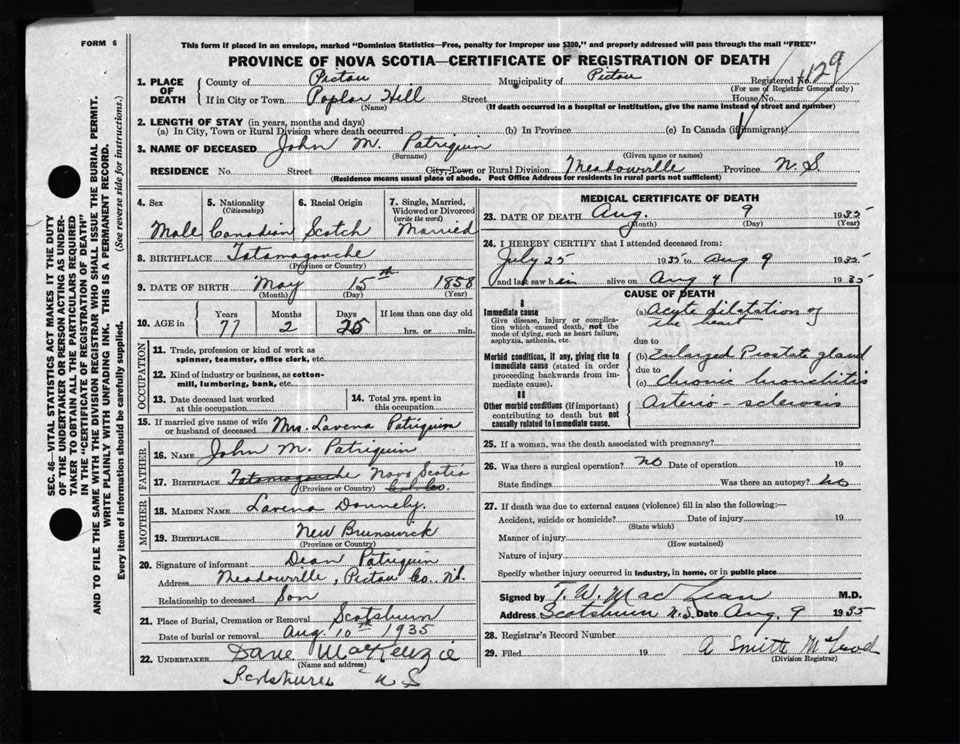 FORM 6
This form if placed in an envelope, marked "Dominion Statistics—Free, penalty for improper use $300," and properly addressed will pass through the mail "FREE"
PROVINCE OF NOVA SCOTIA—CERTIFICATE OF REGISTRATION OF DEATH
1. PLACE OF DEATH
County of Pictou Municipality of Pictou Registered No. 129
(For use of Registrar General only)
If in City or Town Poplar Hill Street House No.
(Name) (If death occurred in a hospital or institution, give the name instead of street and number)
2. LENGTH OF STAY (in years, months and days)
(a) In City, Town or Rural Division where death occurred (b) In Province (c) In Canada (if immigrant)
3. NAME OF DECEASED John M. Patriquin
(Surname) (Given name or names)
RESIDENCE No. Street City, Town or Rural Division Meadowville Province N.S
(Residence means usual place of abode. Post Office Address for residents in rural parts not sufficient)
4. Sex 5. Nationality (Citizenship) 6. Racial Origin 7. Single, Married, Widowed or Divorced (write the word)
Male Canadian Scotch Married
8. BIRTHPLACE Tatamagouche
(Province or Country)
9. DATE OF BIRTH May 15th 1858
(Month) (Day) (Year)
10. AGE in Years Months Days If less than one day old
77 2 25 hrs. or min.
OCCUPATION
11. Trade, profession or kind of work as spinner, teamster, office clerk, etc.
12. Kind of industry or business, as cotton-mill, lumbering, bank, etc.
13. Date deceased last worked at this occupation
14. Total yrs. spent in this occupation
15. If married give name of wife or husband of deceased Mrs. Lavena Patriquin
FATHER
16. NAME John M. Patriquin
17. BIRTHPLACE Tatamagouche Nova Scotia
(Province or Country) Col. Co.
MOTHER
18. MAIDEN NAME Lavena Donnely.
19. BIRTHPLACE New Brunswick
(Province or Country)
20. Signature of informant Dean Patriquin
Address Meadowville, Pictou Co. N.S.
Relationship to deceased Son
21. Place of Burial, Cremation or Removal Scotsburn
Date of burial or removal Aug. 10th 1935
22. UNDERTAKER Dane MacKenzie
(Name and address)
Scotsburn N S
MEDICAL CERTIFICATE OF DEATH
23. DATE OF DEATH Aug. 9 1935
(Month) (Day) (Year)
24. I HEREBY CERTIFY that I attended deceased from:
July 25 1935 to Aug 9 1935
and last saw him alive on Aug 9 1935
CAUSE OF DEATH
I
Immediate cause
Give disease, injury or complication which caused death, not the mode of dying, such as heart failure, asphyxia, asthenia, etc.
(a) Acute dilatation of the heart
due to
Morbid conditions, if any, giving rise to immediate cause (stated in order proceeding backwards from immediate cause).
(b) Enlarged Prostate gland
due to
(c) Chronic bronchitis
II
Other morbid conditions (if important) contributing to death but not causally related to immediate cause.
Arterio-sclerosis
25. If a woman, was the death associated with pregnancy?
26. Was there a surgical operation? No Date of operation 19
State findings Was there an autopsy? No
27. If death was due to external causes (violence) fill in also the following:—
Accident, suicide or homicide? Date of injury 19
(State which)
Manner of injury
(How sustained)
Nature of injury
Specify whether injury occurred in industry, in home, or in public place
Signed by T. W. MacLean M.D.
Address Scotsburn N.S. Date Aug. 9 1935
28. Registrar's Record Number
29. Filed 19 A Smith McLeod
(Division Registrar)
SEC. 46—VITAL STATISTICS ACT MAKES IT THE DUTY
OF THE UNDERTAKER OR PERSON ACTING AS UNDER-
TAKER TO OBTAIN ALL THE PARTICULARS REQUIRED
IN THE "CERTIFICATE OF REGISTRATION OF DEATH"
AND TO FILE THE SAME WITH THE DIVISION REGISTRAR WHO SHALL ISSUE THE BURIAL PERMIT.
WRITE PLAINLY WITH UNFADING INK. THIS IS A PERMANENT RECORD.
Every item of information should be carefully supplied. (See reverse side for instructions.)